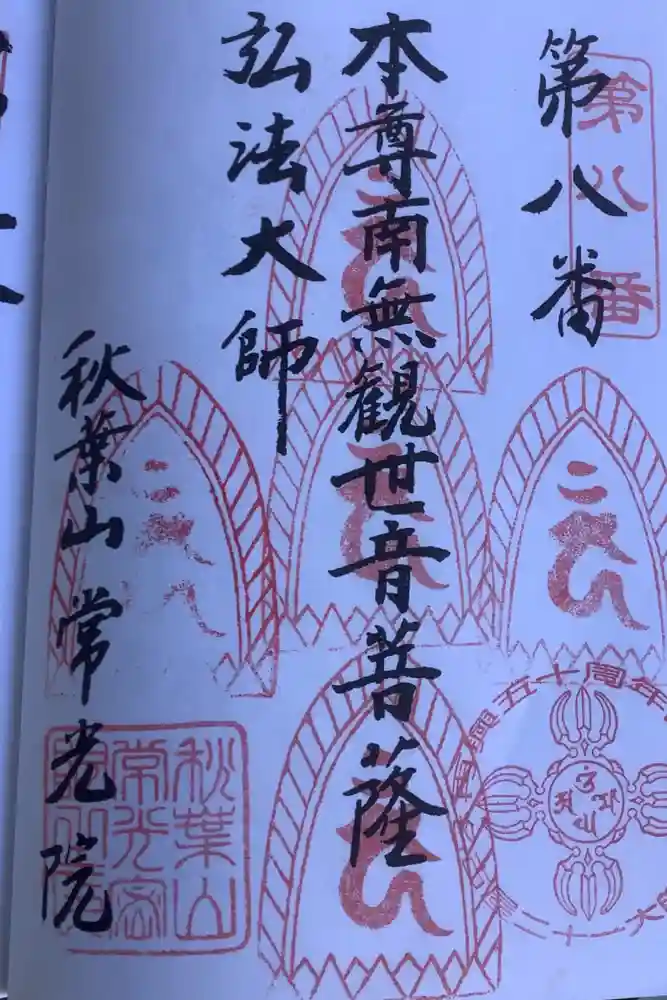 第八番
第八番
本尊南無観世音菩薩
弘法大師
秋葉山常光院
秋葉山
常光密
五十周年